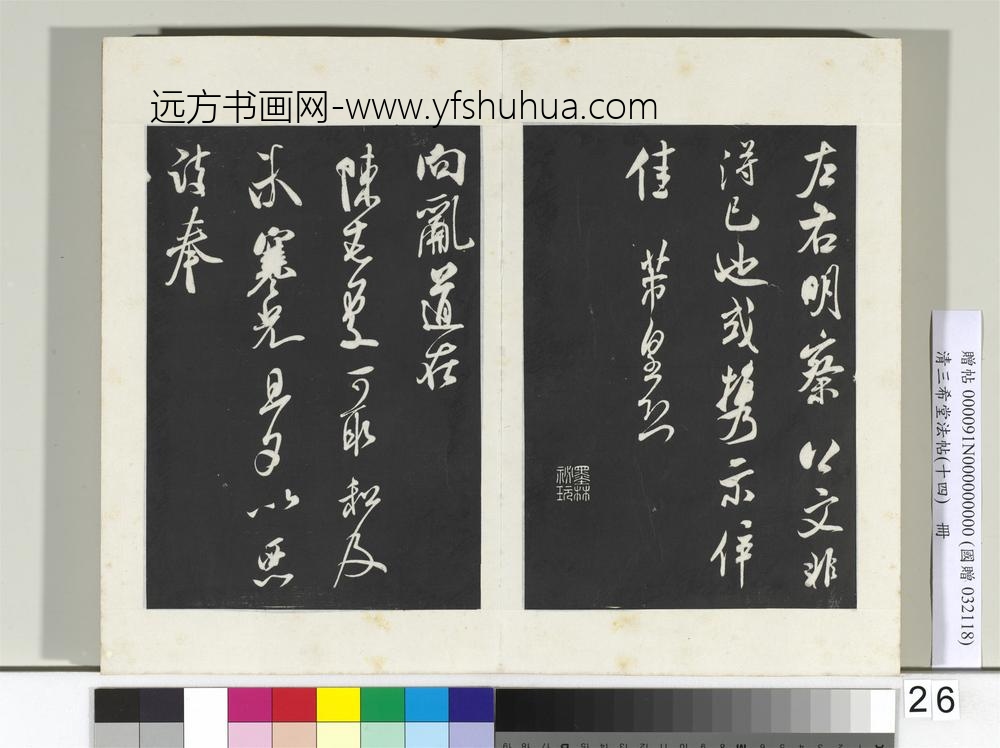 远方书画网-www.yfshuhua.com
左右明察 公文非
得已也或攜示倅
佳 芾皇恐
墨林
祕玩
向亂道在
陳老處可取租及
米寒光旦夕以惡
詩奉
贈帖 000091N000000000 (國贈 032118)
清三希堂法帖(十四) 冊
26